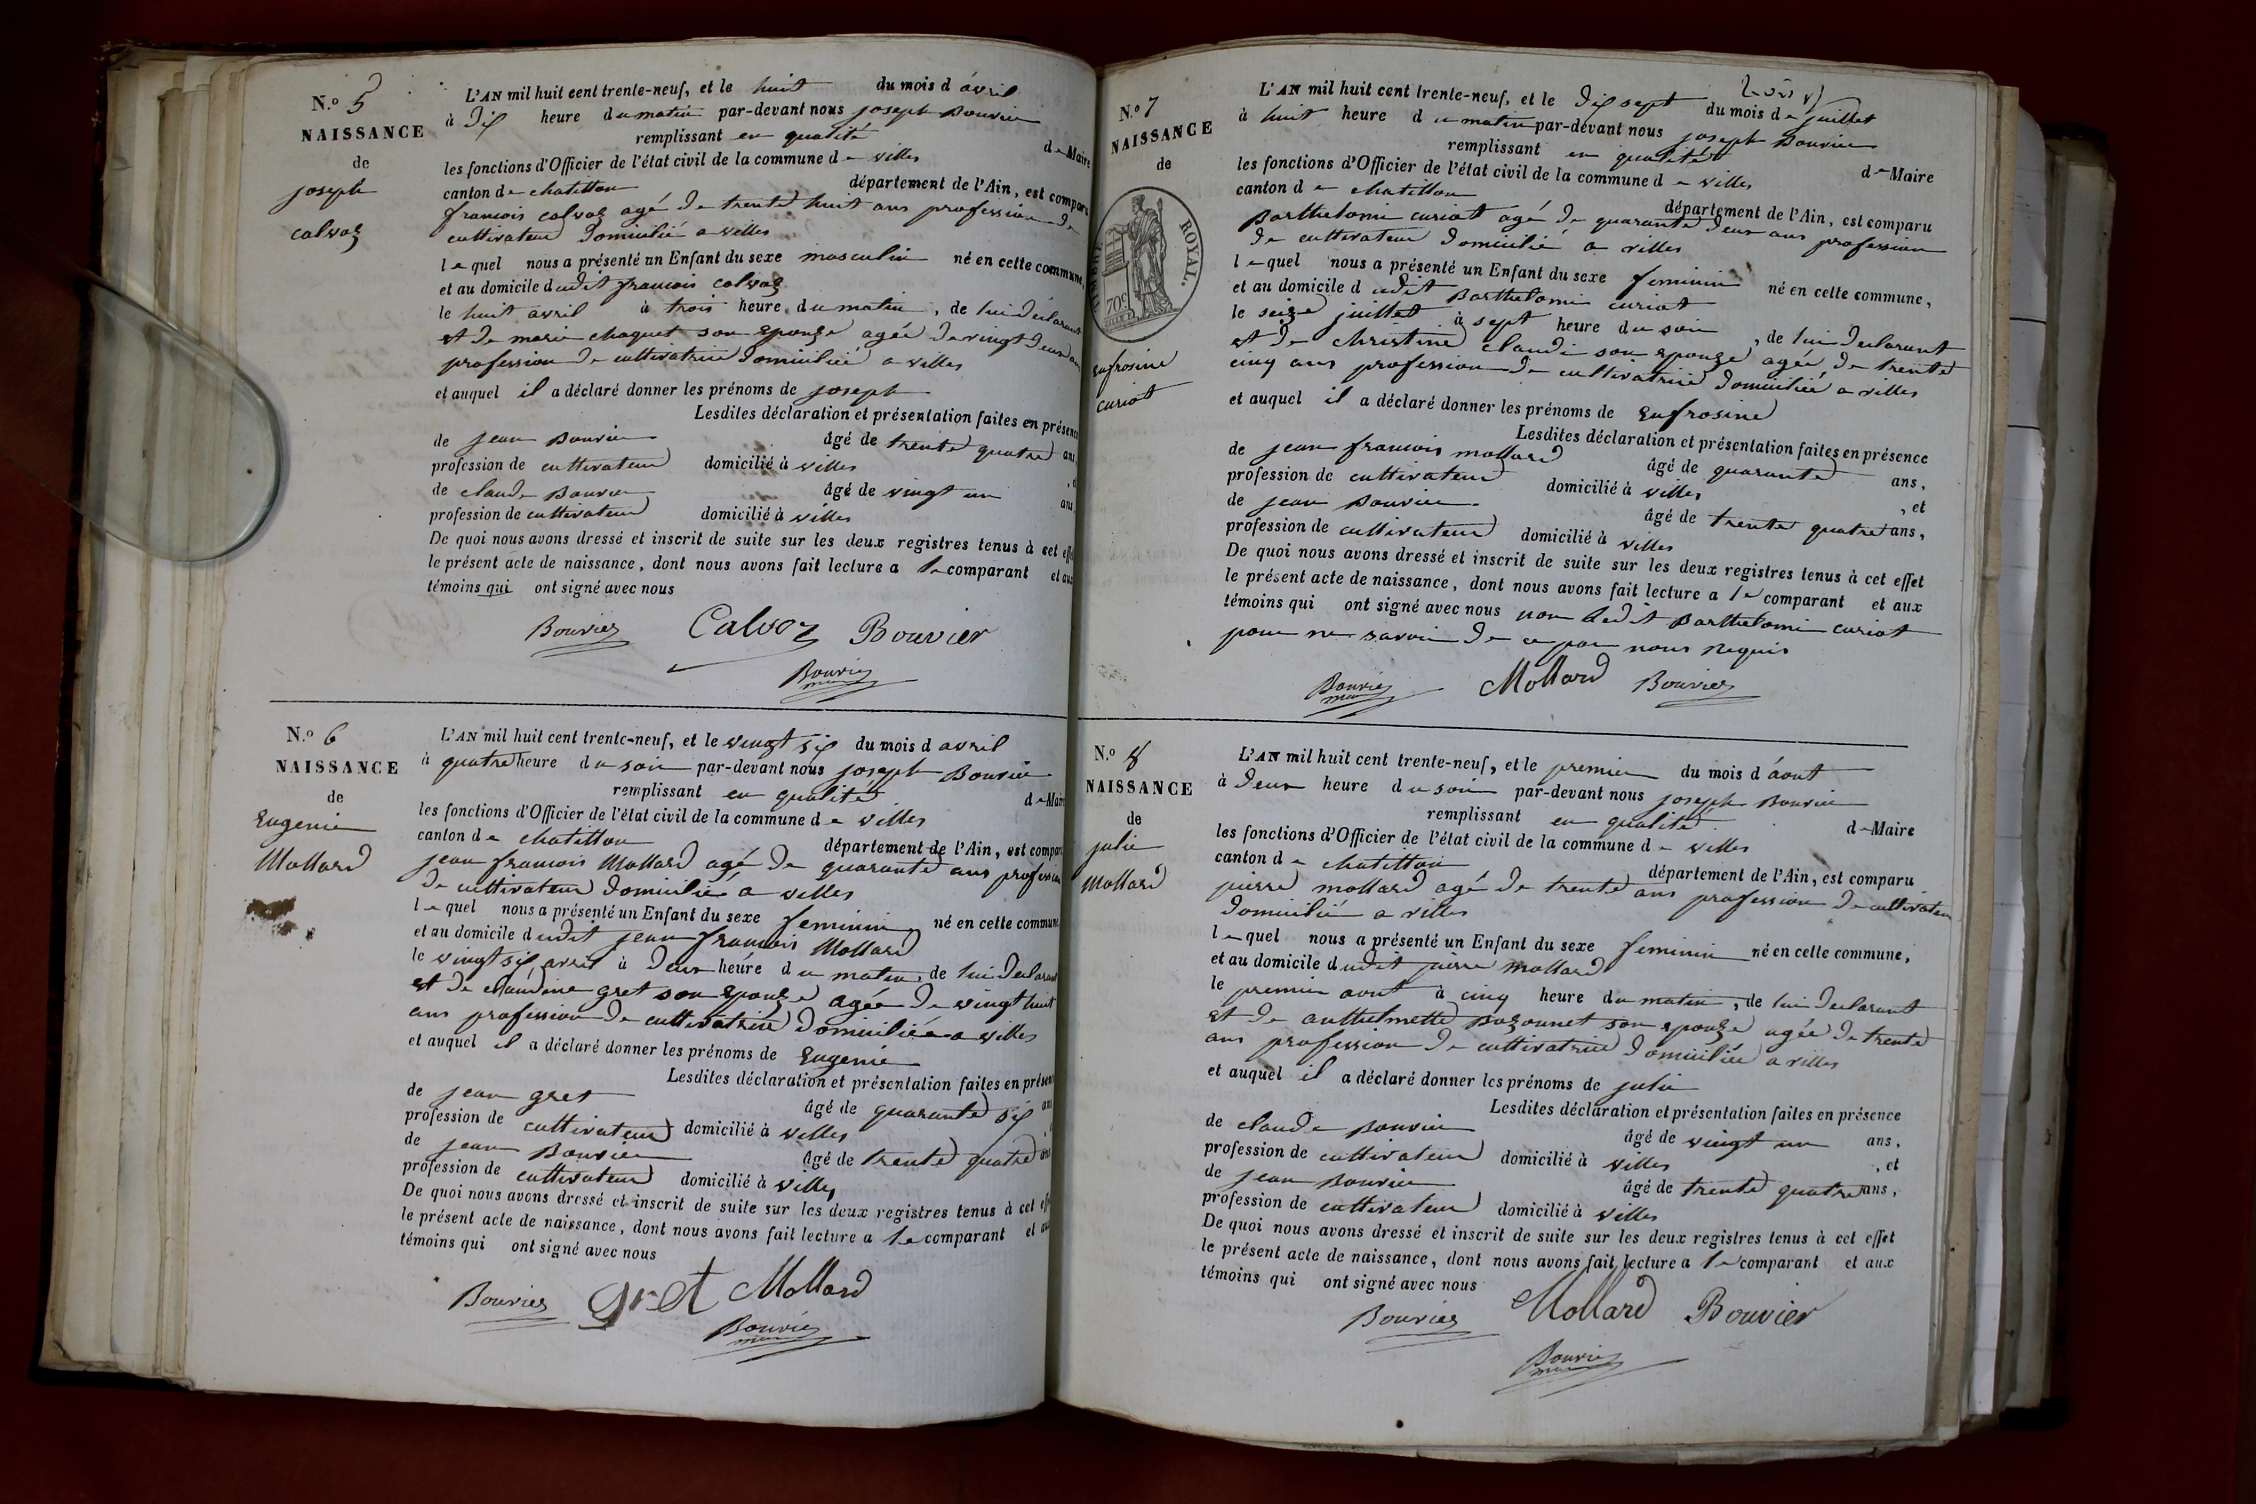 N.o 5
NAISSANCE
de
joseph
calvoz
L'AN mil huit cent trente-neuf, et le huit du mois d'avril
à dix heure du matin par-devant nous joseph Bouvier
remplissant en qualité de Maire
les fonctions d'Officier de l'état civil de la commune de villes
canton de chatillon département de l'Ain, est comparu
francois calvoz agé de trente huit ans profession de
cultivateur domicilié a villes
lequel nous a présenté un Enfant du sexe masculin né en cette commune,
et au domicile dudit francois calvoz
le huit avril à trois heure du matin, de lui declarant
et de marie chaquet son epouze agée de vingt deux ans
profession de cultivatrice domiciliée a villes
et auquel il a déclaré donner les prénoms de joseph
Lesdites déclaration et présentation faites en présence
de jean Bouvier âgé de trente quatre ans
profession de cultivateur domicilié à villes
de claude Bouvier âgé de vingt un ans
profession de cultivateur domicilié à villes
De quoi nous avons dressé et inscrit de suite sur les deux registres tenus à cet effet
le présent acte de naissance, dont nous avons fait lecture a le comparant et aux
témoins qui ont signé avec nous
Bouvier Calvoz Bouvier
Bouvier
maire
N.o 6
NAISSANCE
de
Eugenie
Mollard
L'AN mil huit cent trente-neuf, et le vingt six du mois d avril
à quatre heure du soir par-devant nous joseph Bouvier
remplissant en qualité de Maire
les fonctions d'Officier de l'état civil de la commune de villes
canton de chatillon département de l'Ain, est comparu
jean francois Mollard agé de quarante ans profession
de cultivateur domicilié a villes
lequel nous a présenté un Enfant du sexe feminin né en cette commune
et au domicile dudit jean francois Mollard
le vingt six avril à deux heure du matin, de lui declarant
et de claudine gret son epouze agée de vingt huit
ans profession de cultivatrice domiciliée a villes
et auquel il a déclaré donner les prénoms de Eugenie
Lesdites déclaration et présentation faites en présence
de jean gret âgé de quarante six ans
profession de cultivateur domicilié à villes
de jean Bouvier âgé de trente quatre ans
profession de cultivateur domicilié à villes
De quoi nous avons dressé et inscrit de suite sur les deux registres tenus à cet effet
le présent acte de naissance, dont nous avons fait lecture a le comparant et aux
témoins qui ont signé avec nous
Bouvier gret Mollard
Bouvier
maire
N.o 7
NAISSANCE
de
TIMBRE ROYAL.
70c
eufrosine
curiat
L'AN mil huit cent trente-neuf, et le dix sept du mois de juillet
à huit heure du matin par-devant nous joseph Bouvier
remplissant en qualité de Maire
les fonctions d'Officier de l'état civil de la commune de villes
canton de chatillon département de l'Ain, est comparu
Barthelomi curiat agé de quarante deux ans profession
de cultivateur domicilié a villes
lequel nous a présenté un Enfant du sexe feminin né en cette commune,
et au domicile dudit Barthelomi curiat
le seize juillet à sept heure du soir, de lui declarant
et de christine claudi son epouze agée de trente
cinq ans profession de cultivatrice domiciliée a villes
et auquel il a déclaré donner les prénoms de Eufrosine
Lesdites déclaration et présentation faites en présence
de jean francois mollard âgé de quarante ans,
profession de cultivateur domicilié à villes, et
de jean Bouvier âgé de trente quatre ans,
profession de cultivateur domicilié à villes
De quoi nous avons dressé et inscrit de suite sur les deux registres tenus à cet effet
le présent acte de naissance, dont nous avons fait lecture a le comparant et aux
témoins qui ont signé avec nous non ledit Barthelomi curiat
pour ne savoir de ce par nous requis
Bouvier Mollard Bouvier
maire
N.o 8
NAISSANCE
de
julie
Mollard
L'AN mil huit cent trente-neuf, et le premier du mois d'aout
à deux heure du soir par-devant nous joseph Bouvier
remplissant en qualité de Maire
les fonctions d'Officier de l'état civil de la commune de villes
canton de chatillon département de l'Ain, est comparu
pierre mollard agé de trente ans profession de cultivateur
domicilié a villes
lequel nous a présenté un Enfant du sexe feminin né en cette commune,
et au domicile dudit pierre mollard
le premier aout à cinq heure du matin, de lui declarant
et de anthelmette Bozonnet son epouze agée de trente
ans profession de cultivatrice domiciliée a villes
et auquel il a déclaré donner les prénoms de julie
Lesdites déclaration et présentation faites en présence
de claude Bouvier âgé de vingt un ans,
profession de cultivateur domicilié à villes, et
de jean Bouvier âgé de trente quatre ans,
profession de cultivateur domicilié à villes
De quoi nous avons dressé et inscrit de suite sur les deux registres tenus à cet effet
le présent acte de naissance, dont nous avons fait lecture a le comparant et aux
témoins qui ont signé avec nous
Bouvier Mollard Bouvier
Bouvier
maire